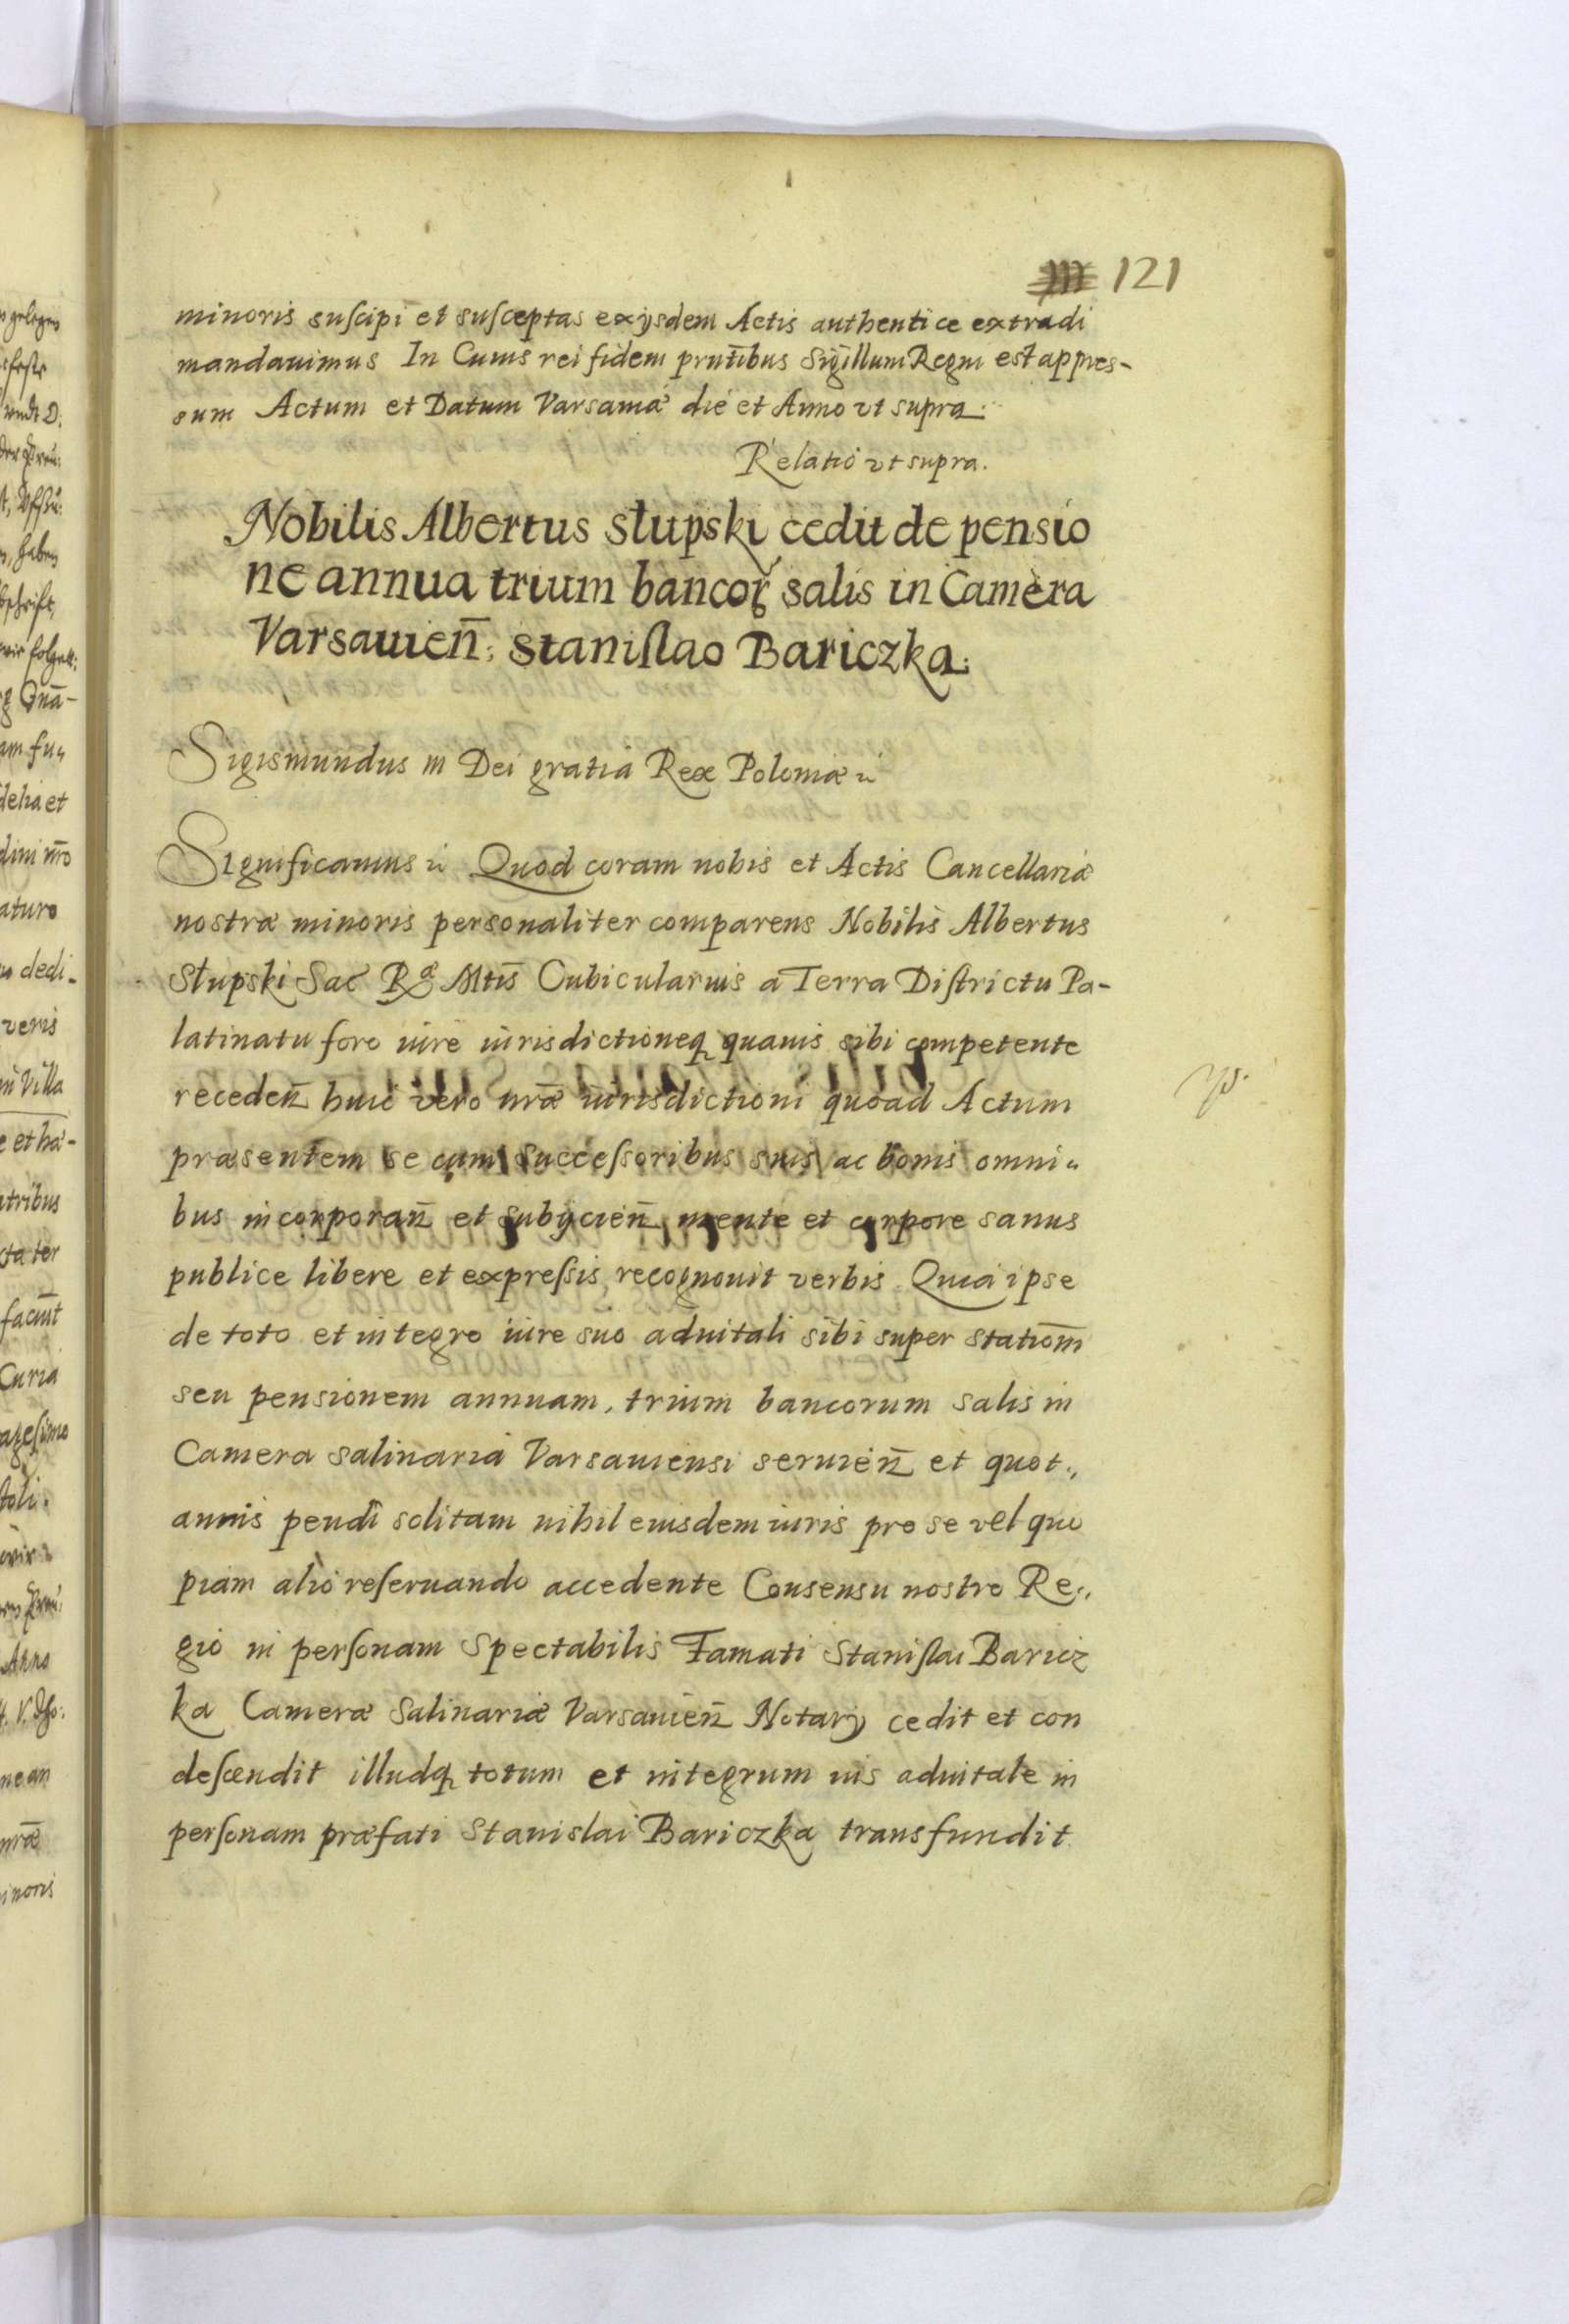 121
minoris suscipi et susceptas ex ijsdem Actis authentice extradi
mandauimus In Cuius rei fidem pr̃ntibus Sigillum Regni est appres-
sum Actum et Datum Varsauiæ die et Anno vt supra.
Relatio vt supra.
Nobilis Albertus Słupski cedit de pensio
ne annua trium bancoꝝ salis in Camera
Varsauien̄: Stanislao Bariczka.
Sigismundus III Dei gratia Rex Poloniæ
Significamus Quod coram nobis et Actis Cancellariæ
nostræ minoris personaliter comparens Nobilis Albertus
Słupski Sac Ræ Mtis Cubicularius a Terra Districtu Pa-
latinatu foro iure iurisdictioneq̨ quauis sibi competente
receden̄ huic vero nr̄æ iurisdictioni quoad Actum
præsentem se cum successoribus suis ac bonis omni-
bus incorporan̄ et subijcien̄ mente et corpore sanus
publice libere et expressis recognouit verbis Quia ipse
de toto et integro iure suo aduitali sibi super statiom̄
seu pensionem annuam, trium bancorum salis in
Camera salinaria Varsauiensi seruien̄ et quot.,
annis pendi solitam nihil eiusdem iuris pro se vel quo
piam alio reseruando accedente Consensu nostro Re.,
gio in personam Spectabilis Famati Stanislai Baricz
ka Cameræ Salinariæ Varsauien̄ Notarij cedit et con
descendit illudq̨ totum et integrum ius aduitale in
personam præfati Stanislai Bariczka transfundit